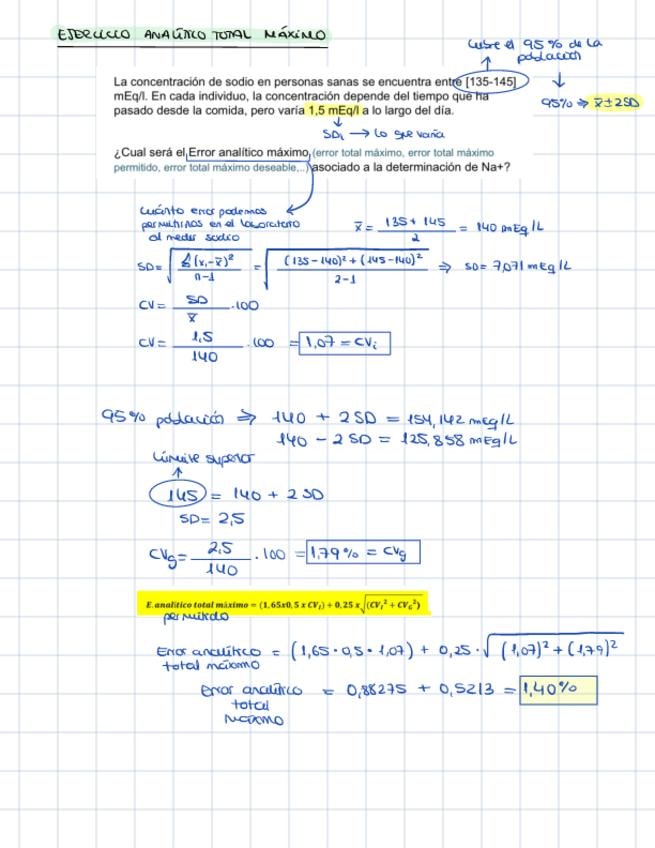 EJERCICIO ANALÍTICO TOTAL MÁXIMO
cubre el 95% de la
población
La concentración de sodio en personas sanas se encuentra entre [135-145]
mEq/l. En cada individuo, la concentración depende del tiempo que ha
pasado desde la comida, pero varía 1,5 mEq/l a lo largo del día.
95% ⇒ x̄ ± 2SD
SDi → lo que varía
¿Cual será el Error analítico máximo (error total máximo, error total máximo
permitido, error total máximo deseable,..) asociado a la determinación de Na+?
cuánto error podemos
permitirnos en el laboratorio
al medir sodio
x̄ = (135 + 145)/2 = 140 mEq/L
SD = √(Σ(xi - x̄)²/(n-1)) = √(((135 - 140)² + (145 - 140)²)/(2-1)) ⇒ SD = 7,071 mEq/L
CV = SD/x̄ · 100
CV = 1,5/140 · 100 = 1,07 = CVi
95% población ⇒ 140 + 2SD = 154,142 mEq/L
140 - 2SD = 125,858 mEq/L
Límite superior
145 = 140 + 2SD
SD = 2,5
CVg = 2,5/140 · 100 = 1,79% = CVg
E. analítico total máximo = (1,65x0,5 x CVI) + 0,25 x √(CVI² + CVG²)
permitido
Error analítico = (1,65 · 0,5 · 1,07) + 0,25 · √((1,07)² + (1,79)²
total máximo
Error analítico = 0,88275 + 0,5213 = 1,40%
total
máximo